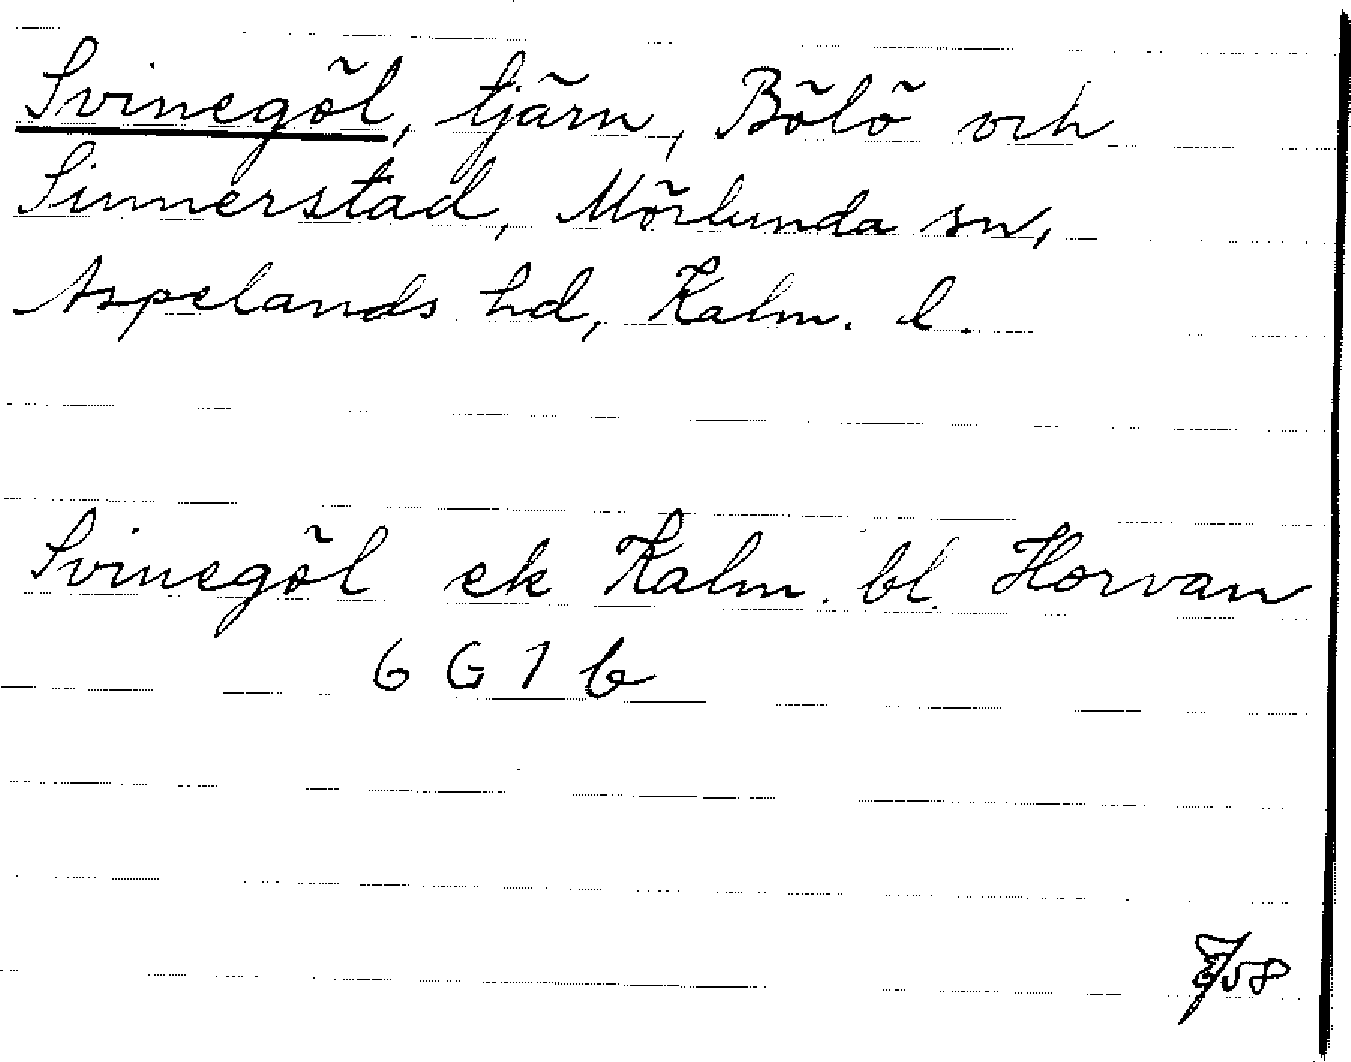 Svinegöl, tjärn, Bölö och
Sinnerstad, Mörlunda sn,
Aspelands hd, Kalm. l.
Svinegöl ek Kalm. bl. Horvan
6 G 1 b